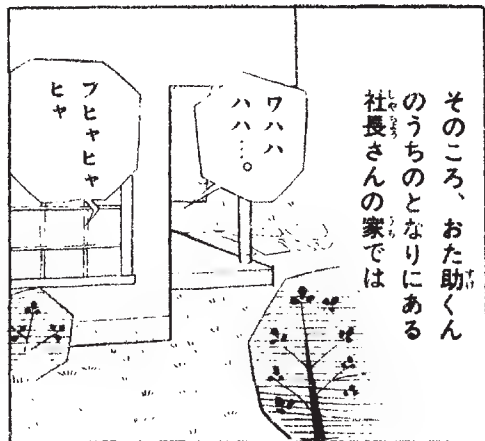 そのころ、おた助くん
のうちのとなりにある
社長さんの家では
ワハハ
ハハ…。
フヒャヒャ
ヒャ